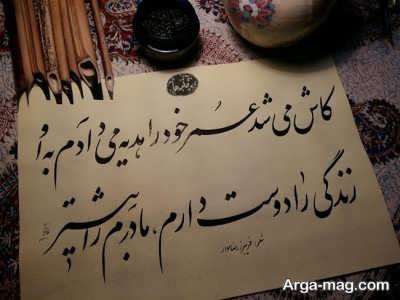 کاش می شد عمر خود را هدیه می دادم به او
زندگی را دوست دارم، مادرم را بیشتر
شعر:
Arga-mag.com